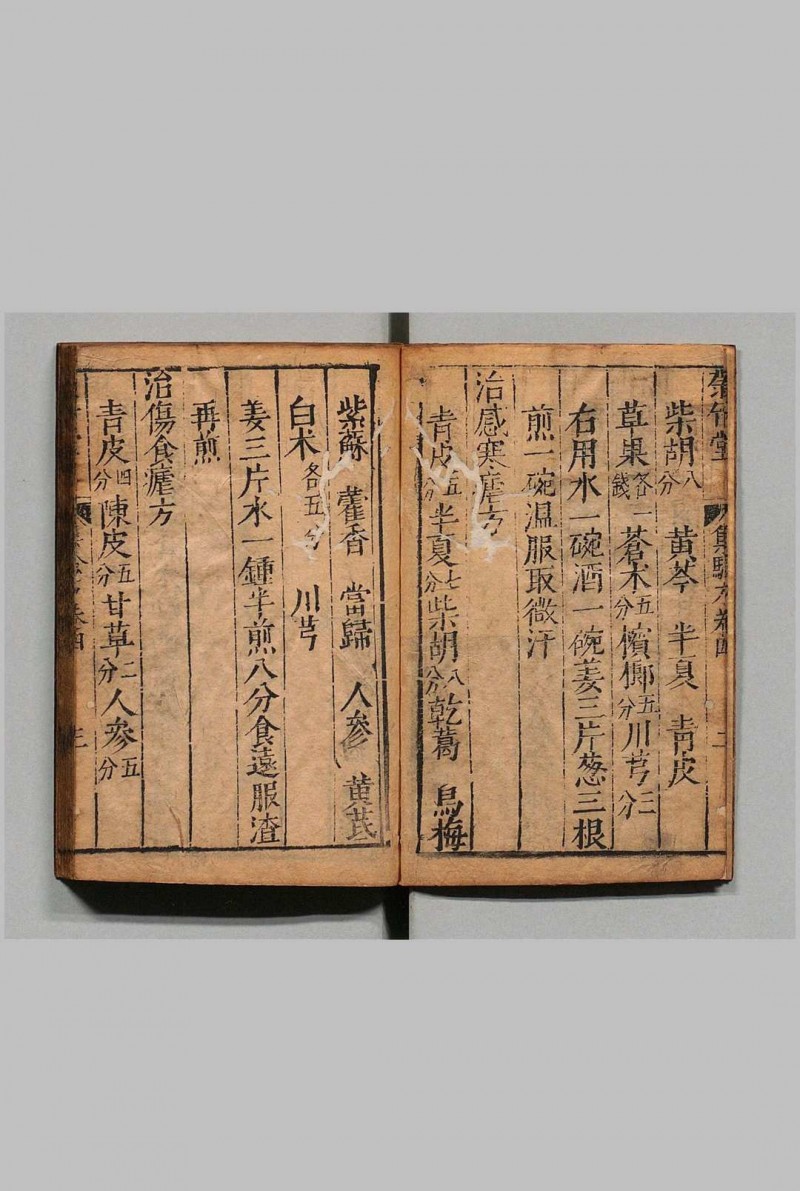 堂 集驗方卷四 二
柴胡八分 黃芩 半夏 青皮
草菓各一錢 蒼术五分 檳榔五分 川芎二分
右用水一碗酒一碗姜三片葱三根
煎一碗温服取微汗
治感寒瘧方
青皮五分 半夏七分 柴胡八分 乾葛 烏梅
紫蘇 藿香 當歸 人參 黃芪
白术各五分 川芎
姜三片水一鍾半煎八分食遠服渣
再煎
治傷食瘧方
青皮四分 陳皮五分 甘草二分 人參五分